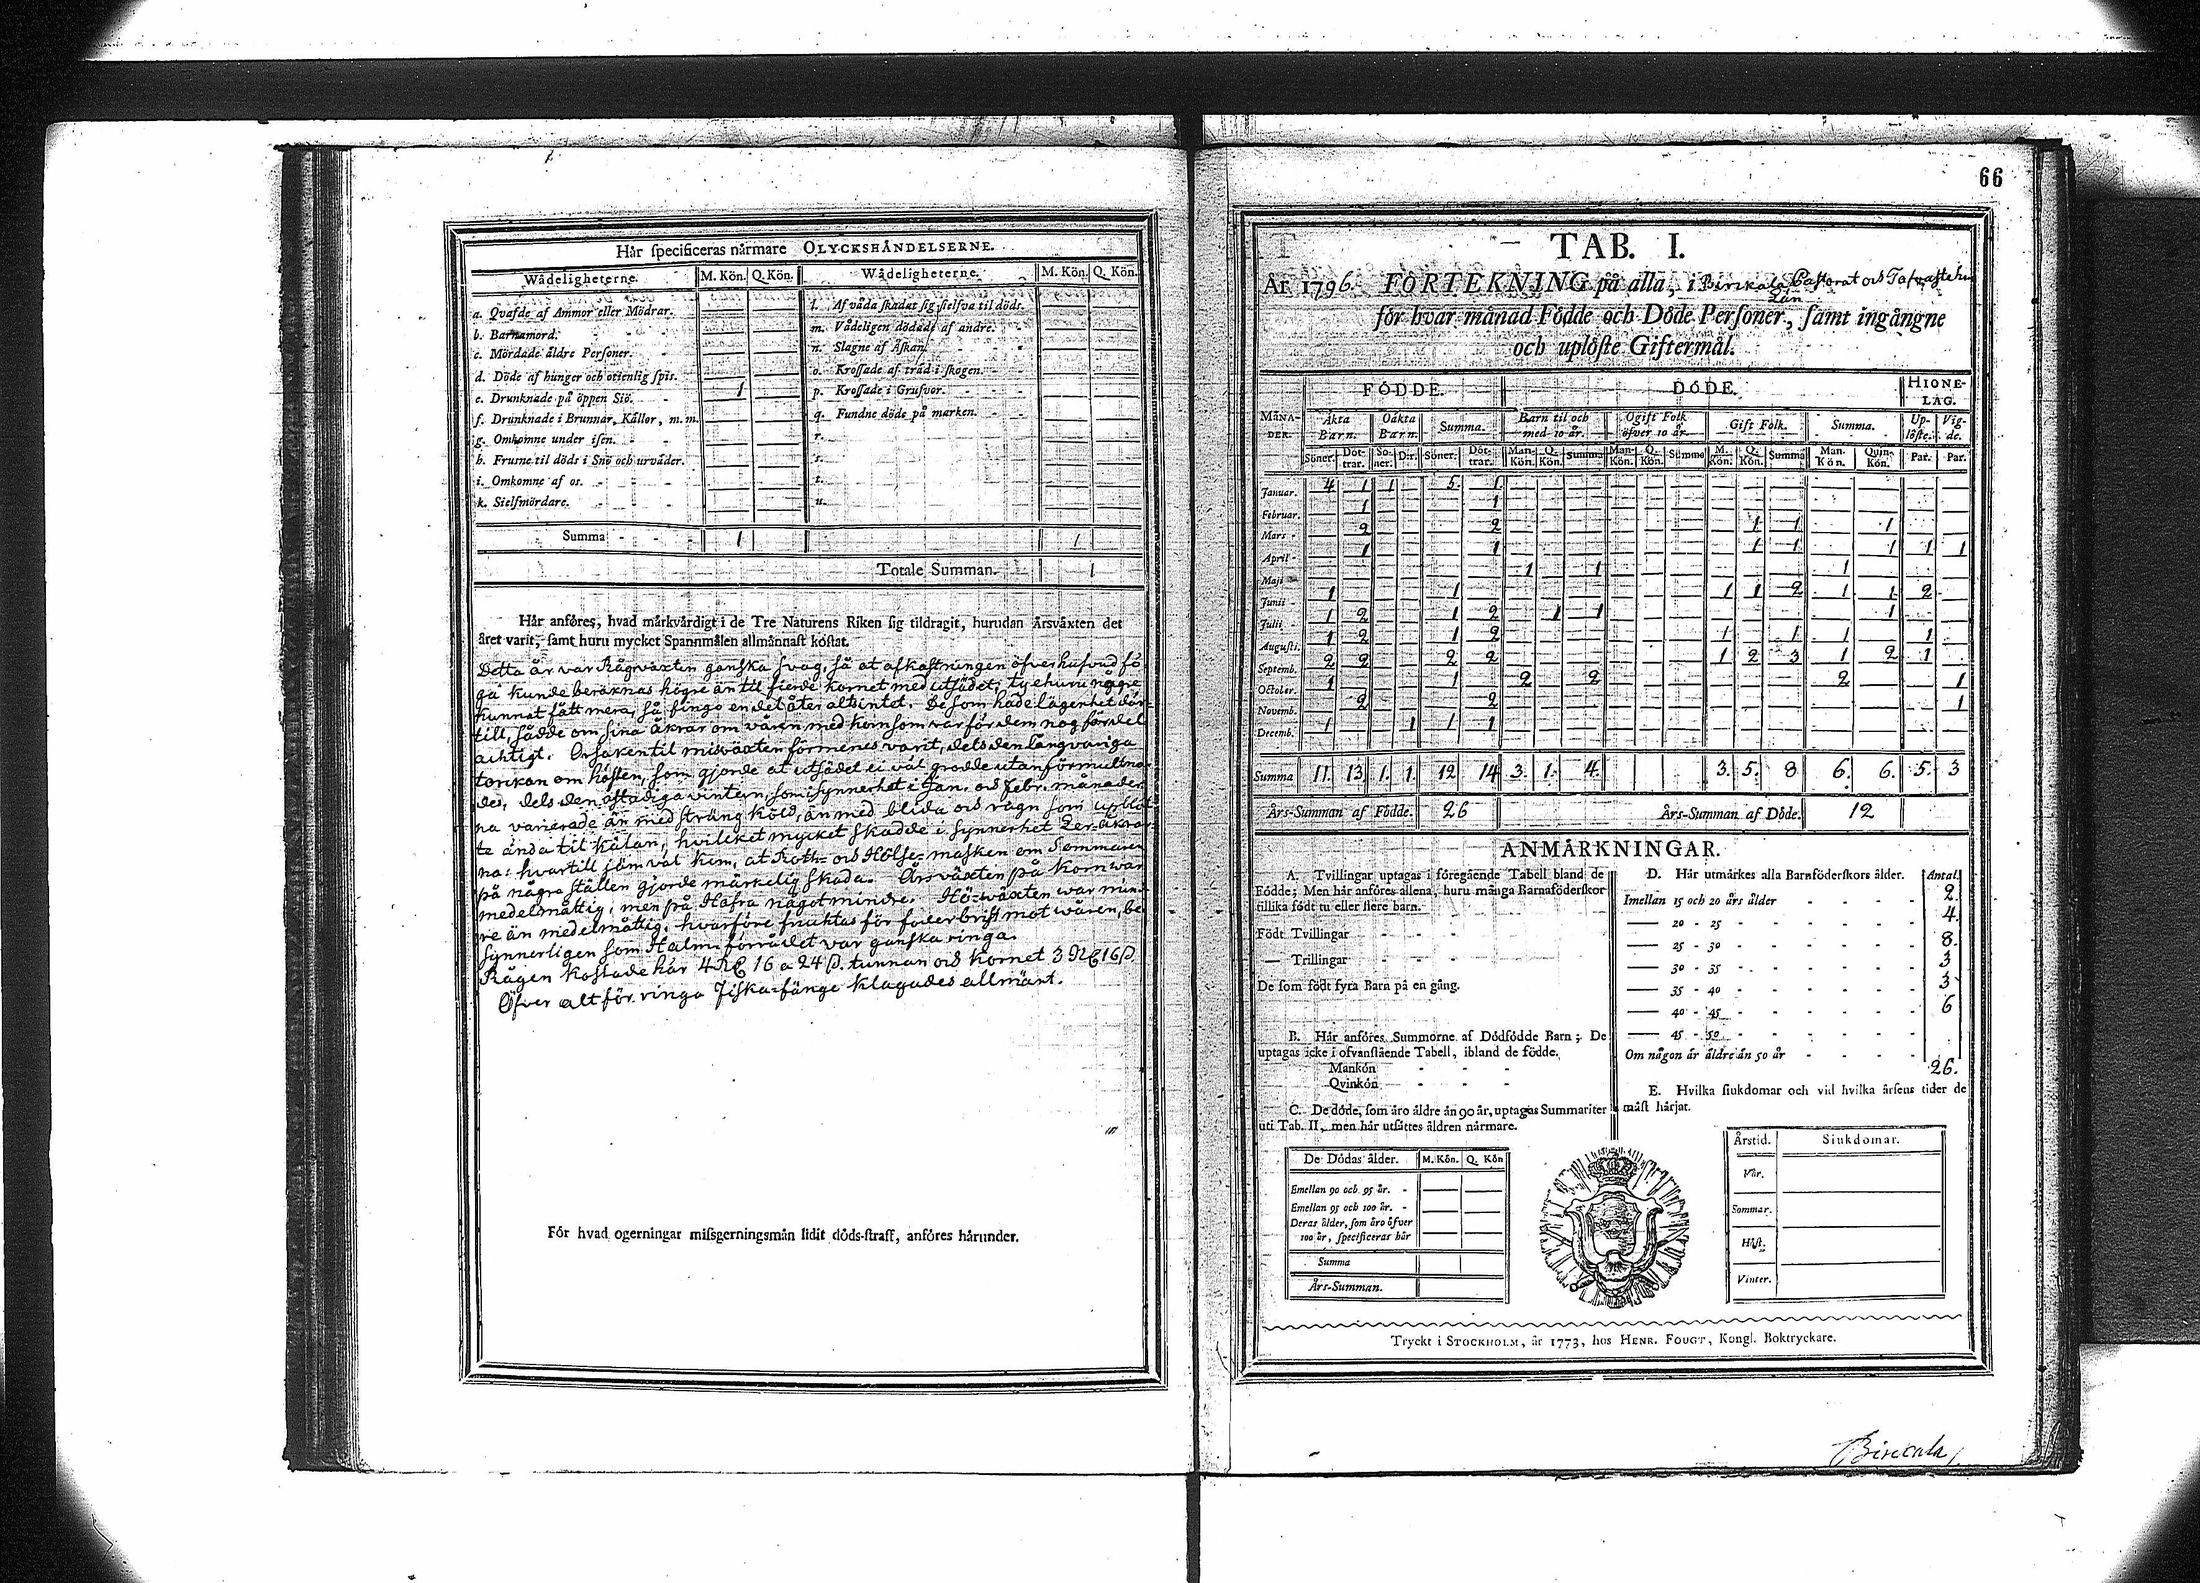 Här specificeras närmare OLYCKSHÄNDELSERNE.
Wådeligheterne. M. Kön. Q. Kön. Wådeligheterne. M. Kön. Q. Kön.
a. Qvafde af Ammor eller Mödrar. l. Af våda skadat sig sielfva til döds.
b. Barnamord. m. Vådeligen dödade af andre.
c. Mördade äldre Personer. n. Slagne af Åskan.
d. Döde af hunger och otienlig spis. o. Krossade af träd i skogen.
e. Drunknade på öppen Siö. 1 p. Krossade i Grufvor.
f. Drunknade i Brunnar, Källor, m. m. q. Fundne döde på marken.
g. Omkomne under isen. r.
h. Frusne til döds i Snö och urväder. s.
i. Omkomne af os. t.
k. Sielfmördare. u.
Summa 1 1
Totale Summan. 1
Här anföres, hvad märkvärdigt i de Tre Naturens Riken sig tildragit, hurudan Årsväxten det
året varit, samt huru mycket Spannmålen allmännast kostat.
Detta år var Rågväxten ganska svag, så at afkastningen öfver hufvud fö-
ga kunde beräknas högre än til fierde kornet med utsädet; tyehuru någre
kunnat fått mera, så fingo en del åter altsintet. De som hade lägenhet där-
till, sådde om sina åkrar om våren med korn som var för dem nog fördel
aktigt. Orsaken til misväxten förmenes varit, dels den långvariga
torckan om hösten, som gjorde at utsädet ei väl grodde utan förmultna-
des, dels den ostadiga vintern, som i synnerhet i Jan. och Febr. månader
na varierade än med sträng köld, än med blida och rägn som upblöt
te ända til kälan, hvilcket mycket skadde i synnerhet Ler-åkrar-
na: hvartill jämväl kom, at Roth- och Hölse-masken om Sommaren
på några ställen gjorde märkelig skada. Årsväxten på korn war
medelmåttig, men på Hafra något mindre. Hö-wäxten war min-
re än medelmåttig, hvarföre fruktas för foderbrist mot wåren, be
synnerligen som Halm-förrådet var ganska ringa.
Rågen kostade här 4 Rd 16 a 24 ß. tunnan och kornet 3 Rd 16 ß
Öfver alt för ringa Fiska-fänge klagades allmänt.
För hvad ogerningar missgerningsmän lidit döds-straff, anföres härunder.
66
TAB. I.
År 1796. FÖRTEKNING på alla, i Birckala Pastorat och Tafvastehus
Län
för hvar månad Födde och Döde Personer, samt ingångne
och uplöste Giftermål.
FÖDDE. DÖDE. HIONE-LAG.
MÅNA-DER. Äkta Barn. Oäkta Barn. Summa. Barn til och med 10 år. Ogift Folk öfver 10 år. Gift Folk. Summa. Up-löste. Vig-de.
Söner. Döt-trar. Sö-ner. D:r. Söner. Döt-trar. Man-Kön. Q. Kön. Summa Man-Kön. Q. Kön. Summa M. Kön. Q. Kön. Summa Man-Kön. Quin-Kön. Par. Par.
Januar. 4 1 1 5 1
Februar. 1 1
Mars 2 2 1 1 1
April 1 1 1 1 1 1 1
Maji 1 1 1
Junii 1 1 1 1 2 1 1 2
Julii 1 2 1 2 1 1 1
Augusti. 1 2 1 2 1 1 1 1
Septemb. 2 2 2 2 1 2 3 1 2 1
October. 1 1 2 2 2 1
Novemb. 2 2 1
Decemb. 1 1 1 1
Summa 11. 13. 1. 1. 12 14 3. 1. 4. 3. 5. 8 6. 6. 5. 3
Års-Summan af Födde. 26 Års-Summan af Döde. 12
ANMÄRKNINGAR.
A. Tvillingar uptagas i föregående Tabell bland de
Födde; Men här anföres allena, huru många Barnaföderskor
tillika födt tu eller flere barn.
Födt Tvillingar
— Trillingar
De som födt fyra Barn på en gång.
B. Här anföres Summorne af Dödfödde Barn; De
uptagas icke i ofvanstående Tabell, ibland de födde.
Mankön
Qvinkön
C. De döde, som äro äldre än 90 år, uptagas Summariter
uti Tab. II, men här utsättes åldren närmare.
De Dödas ålder. M. Kön. Q. Kön
Emellan 90 och 95 år.
Emellan 95 och 100 år.
Deras ålder, som äro öfver
100 år, specificeras här
Summa
Års-Summan.
D. Här utmärkes alla Barnföderskors ålder. Antal.
Imellan 15 och 20 års ålder 2.
— 20 - 25 4.
— 25 - 30 8.
— 30 - 35 3
— 35 - 40 3
— 40 - 45 6
— 45 - 50
Om någon är äldre än 50 år
26.
E. Hvilka siukdomar och vid hvilka årsens tider de
mäst härjat.
Årstid. Siukdomar.
Vår.
Sommar.
Höst.
Vinter.
Tryckt i STOCKHOLM, år 1773, hos HENR. FOUGT, Kongl. Boktryckare.
Birccala